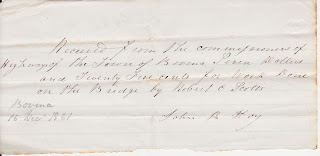 Received from the commissioners of
Highways of the Town of Bovina Seven Dollars
and Twenty five cents for Work done
on the Bridge by Robert C Scott
Bovina
16 Dec 1861
John R Hoy